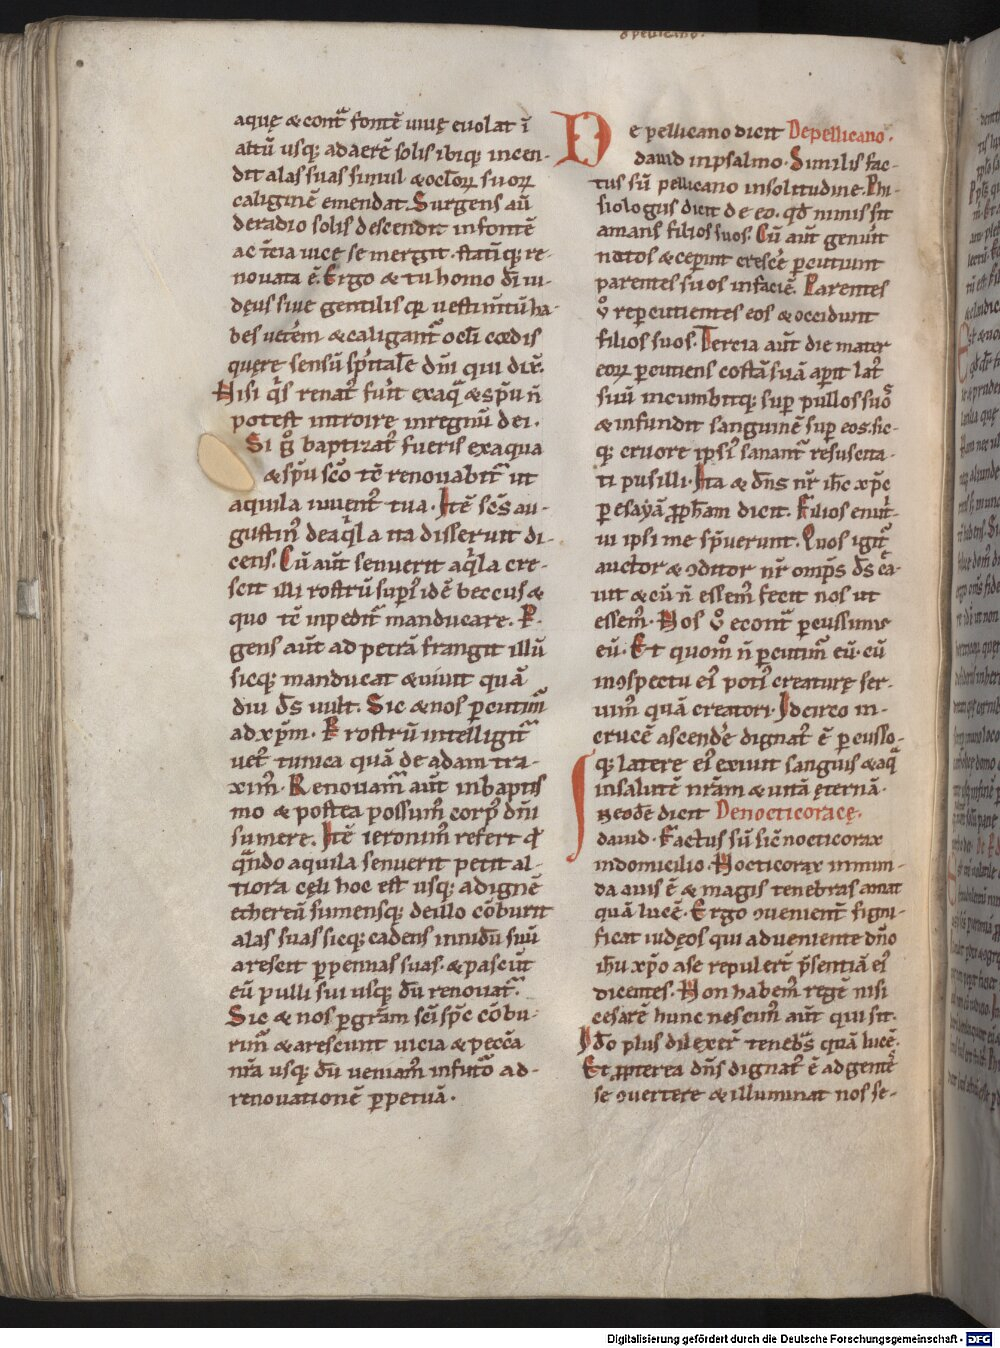 d̄ pellicano.
aquę & contͣ fontē uiuę euolat ī
altū usq; ad aerē solis ibiq; incen-
dit alas suas simul & oclōꝝ suoꝝ
caliginē emendat. Surgens aū
de radio solis descendit in fontē
ac t̄cia uice se mergit. statīq; re-
nouata ē. Ergo & tu homo dī iu-
dęus siue gentilis q uestim̄tū ha-
bes uet̄em & caligant̄ oclī cordis
quere sensū spītalē dn̄i qui dix̄.
Nisi qͥs renatꝰ fuīt ex aqͣ & sp̄u n̄
potest introire in regnū dei.
Si gͦ baptizatꝰ fueris ex aqua
& sp̄u sc̄o tē renouabit̄ ut
aquila iuuentꝰ tua. Itē sc̄s au-
gustinꝰ de aqͥla ita disseruit di-
cens. Cū aūt senuerit aqͥla cre-
scit illi rostrū supīꝰ id ē beccus &
quo tē inpedit̄ manducare. P-
gens aūt ad petrā frangit illū
sicq; manducat & uiuit quā
diu d̄s uult. Sic & nos ꝑcutimͣ
ad xp̄m. P rostrū intelligit̄
uetꝰ tunica quā de adam tra-
ximꝰ. Renouam̄ aūt in baptis
mo & postea possumꝰ corpꝰ dn̄i
sumere. Itē ieronimꝰ refert qͩ
qͣndo aquila senuerit petit al-
tiora cęli hoc est usq; ad ignē
ethereū sumensq; deillo cōburit
alas suas sicq; cadens in nidū suū
arescit ꝑ pennas suas. & pascūt
eū pulli sui usq; dū renouat̄.
Sic & nos ꝑ grām sc̄i sp̄c cōbu-
rimꝰ & arescunt uicia & pecc̄a
nr̄a usq; dū ueniamꝰ in futꝰo ad-
renouationē ꝑpetuā.
De pellicano dicit De pellicano.
dauid in psalmo. Similis fac-
tus sū pellicano in solitudine. Phi-
siologus dicit de eo. qd̄ nimis sit
amans filios suos. Cū aūt genūit
natos & cepīnt crescē ꝑcutiunt
parentes suos in faciē. Parentes
ū reꝑcutientes eos & occidunt
filios suos. Tercia aūt die mater
eoꝝ ꝑcutiens costā suā apīt latꝰ
suū incumbitq; sup̄ pullos suoͦ
& infundit sanguinē sup̄ eos. sic-
q; cruore ipsīꝰ sanant̄ resuscita-
ti pusilli. Ita & dn̄s nr̄ ihc̄ xp̄c
ꝑ esayā ꝓphām dicit. Filios enut̄-
ui ipsi me sp̄uerunt. Quos igit̄
auctor & ꝯditor nr̄ omp̄s d̄s c̄a-
uit & cū n̄ essemꝰ fecit nos ut
essemꝰ. Nos ū econt̄ ꝑcussimꝰ
eū. Et quomͦ n̄ ꝑcutimꝰ eū. cū
in ꝯspectu eiꝰ potīꝰ creaturę ser-
uimꝰ quā creatori. Idcirco in-
crucē ascendē dignatꝰ ē ꝑcusso-
q; latere eiꝰ exiuit sanguis & aqͣ
in salutē nr̄am & uitā ęternā.
In eodē dicit De nocticoracę.
dauid. Factus sū sic̄ nocticorax
in domicilio. Nocticorax inmun-
da auis ē & magis tenebras amat
quā lucē. Ergo ꝯuenient̄ signi-
ficat iudęos qui adueniente dn̄o
ihū xp̄o a se repulert̄ p̄sentiā eiꝰ
dicentes. Non habemꝰ regē nisi
cesarē hunc nescimꝰ aūt qui sit.
Id̄o plus dilexer̄ tenebr̄s quā lucē.
Et ꝓpterea dn̄s dignatꝰ ē ad gentē
se ꝯuertere & illuminat nos se-
Digitalisierung gefördert durch die Deutsche Forschungsgemeinschaft - DFG